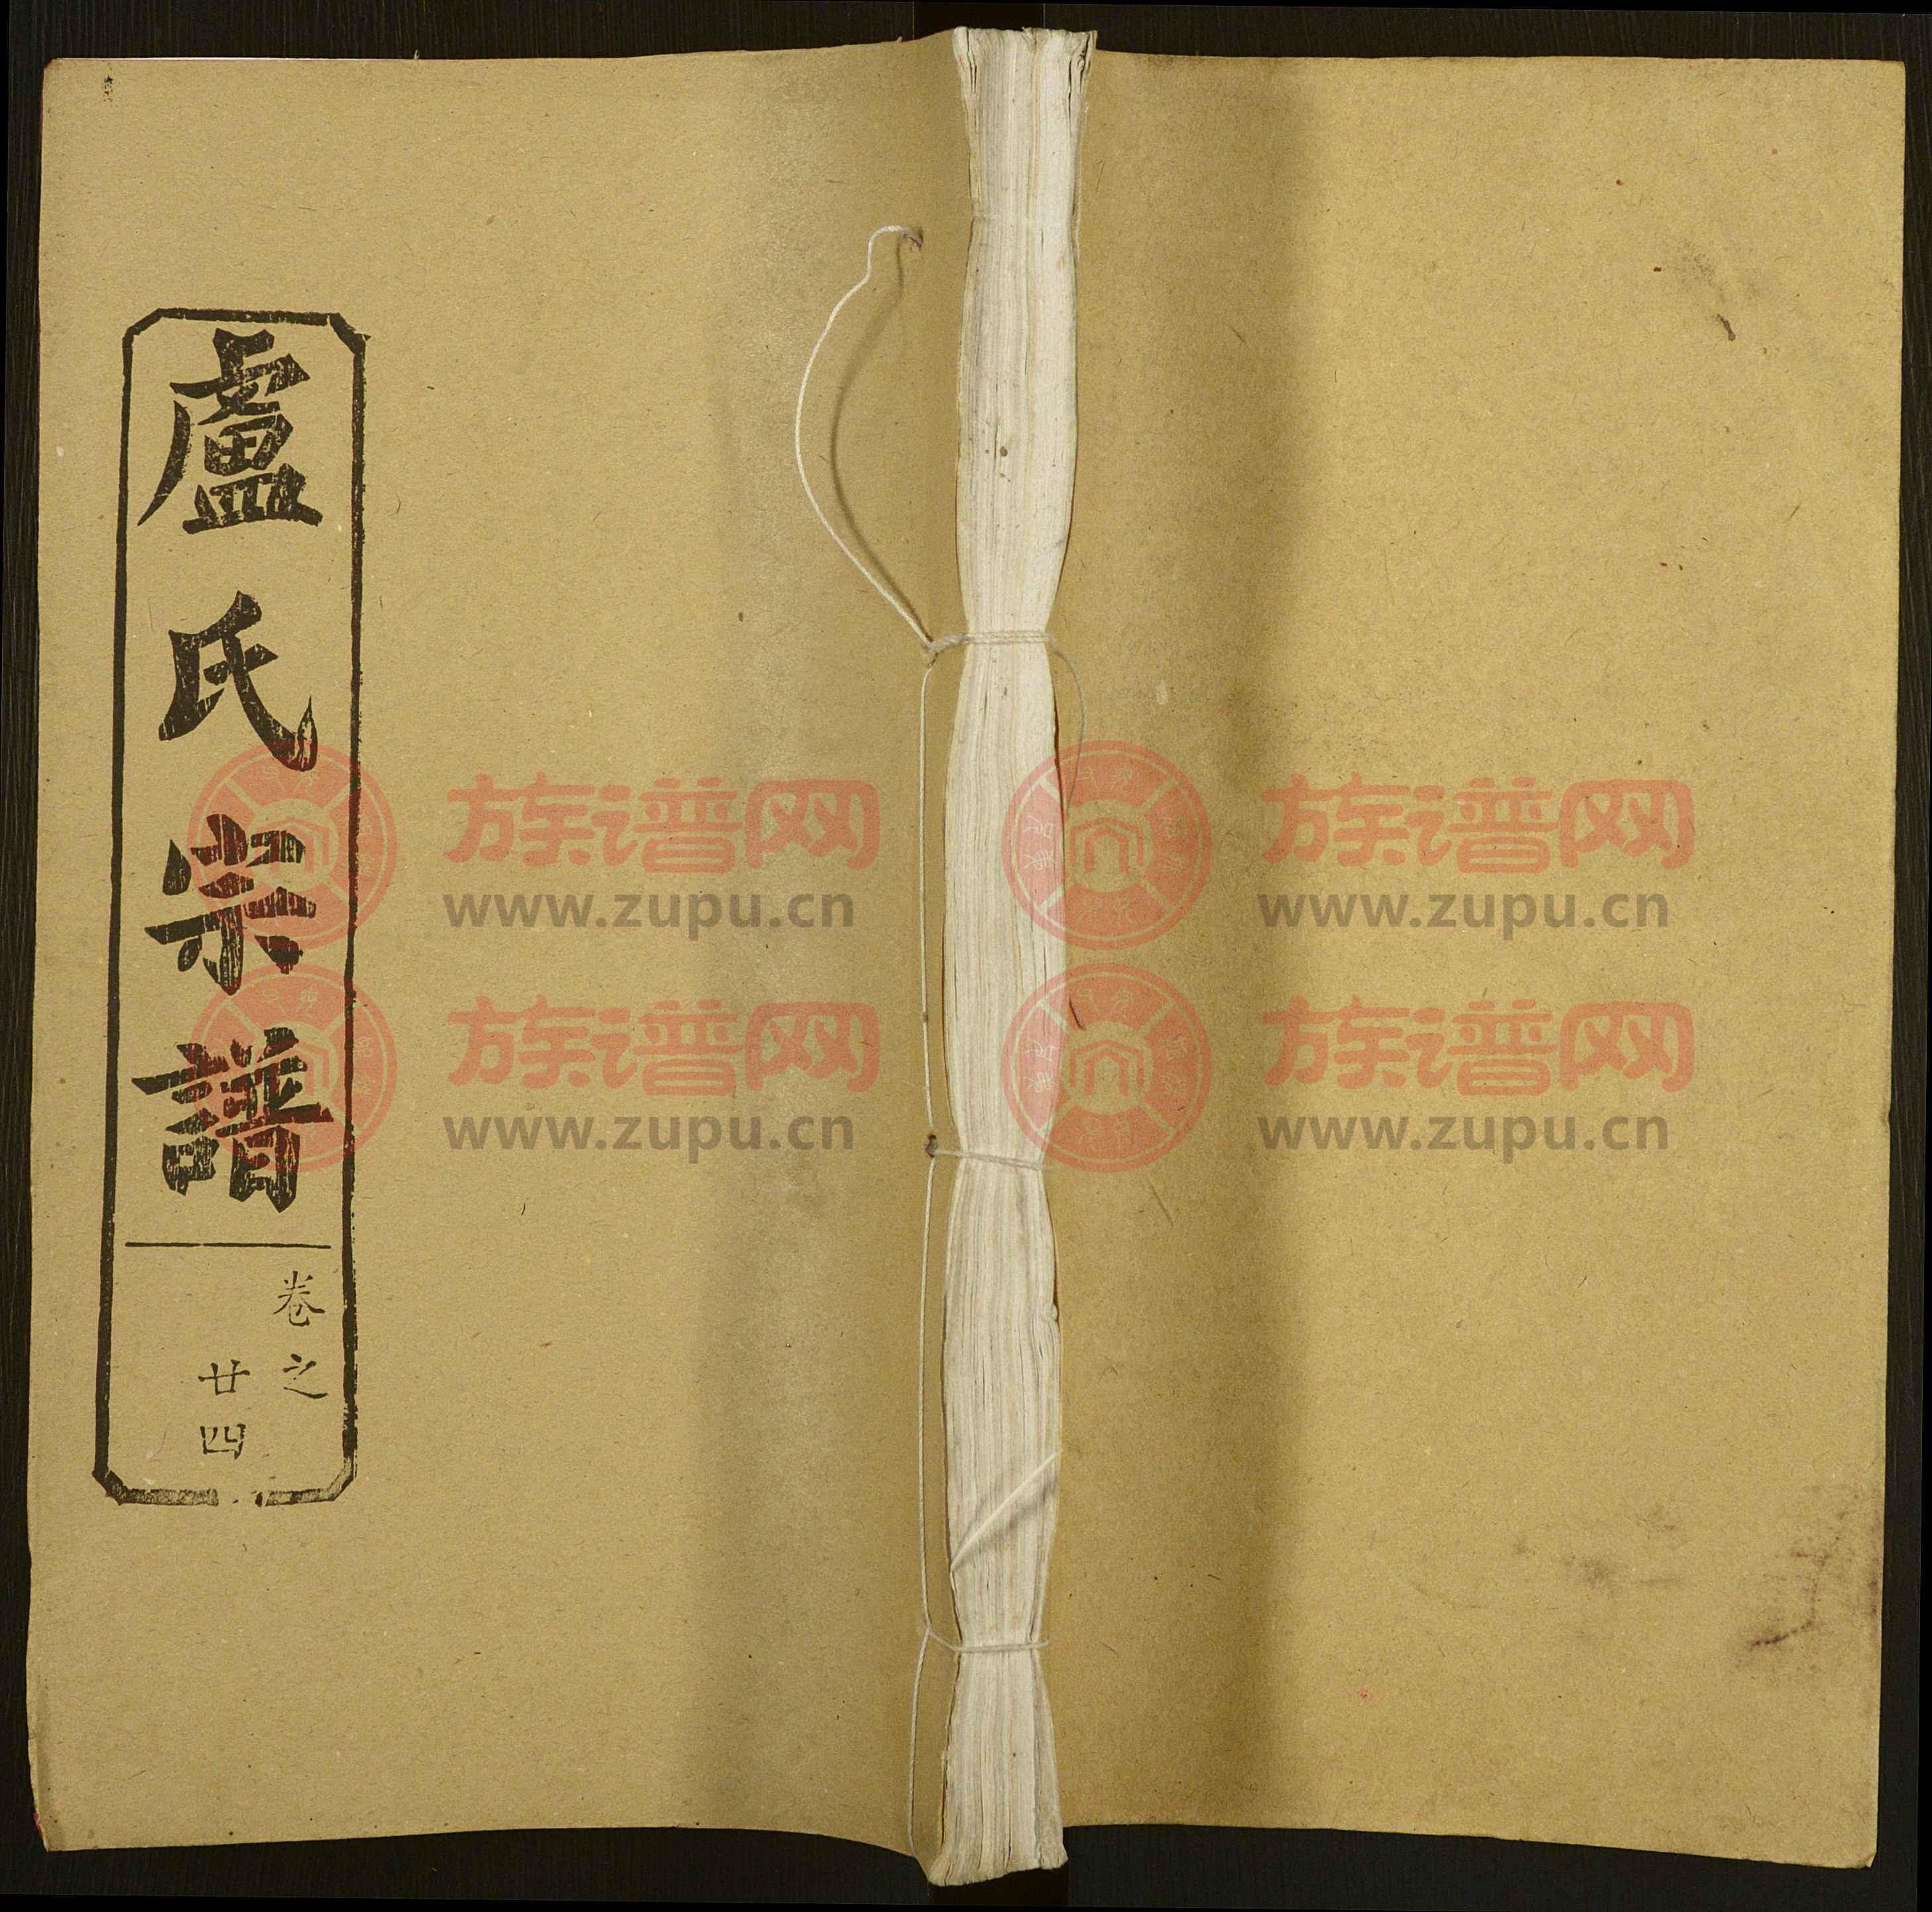 盧氏宗譜
卷之
廿四
族谱网
www.zupu.cn
族谱网
www.zupu.cn
族谱网
www.zupu.cn
族谱网
www.zupu.cn